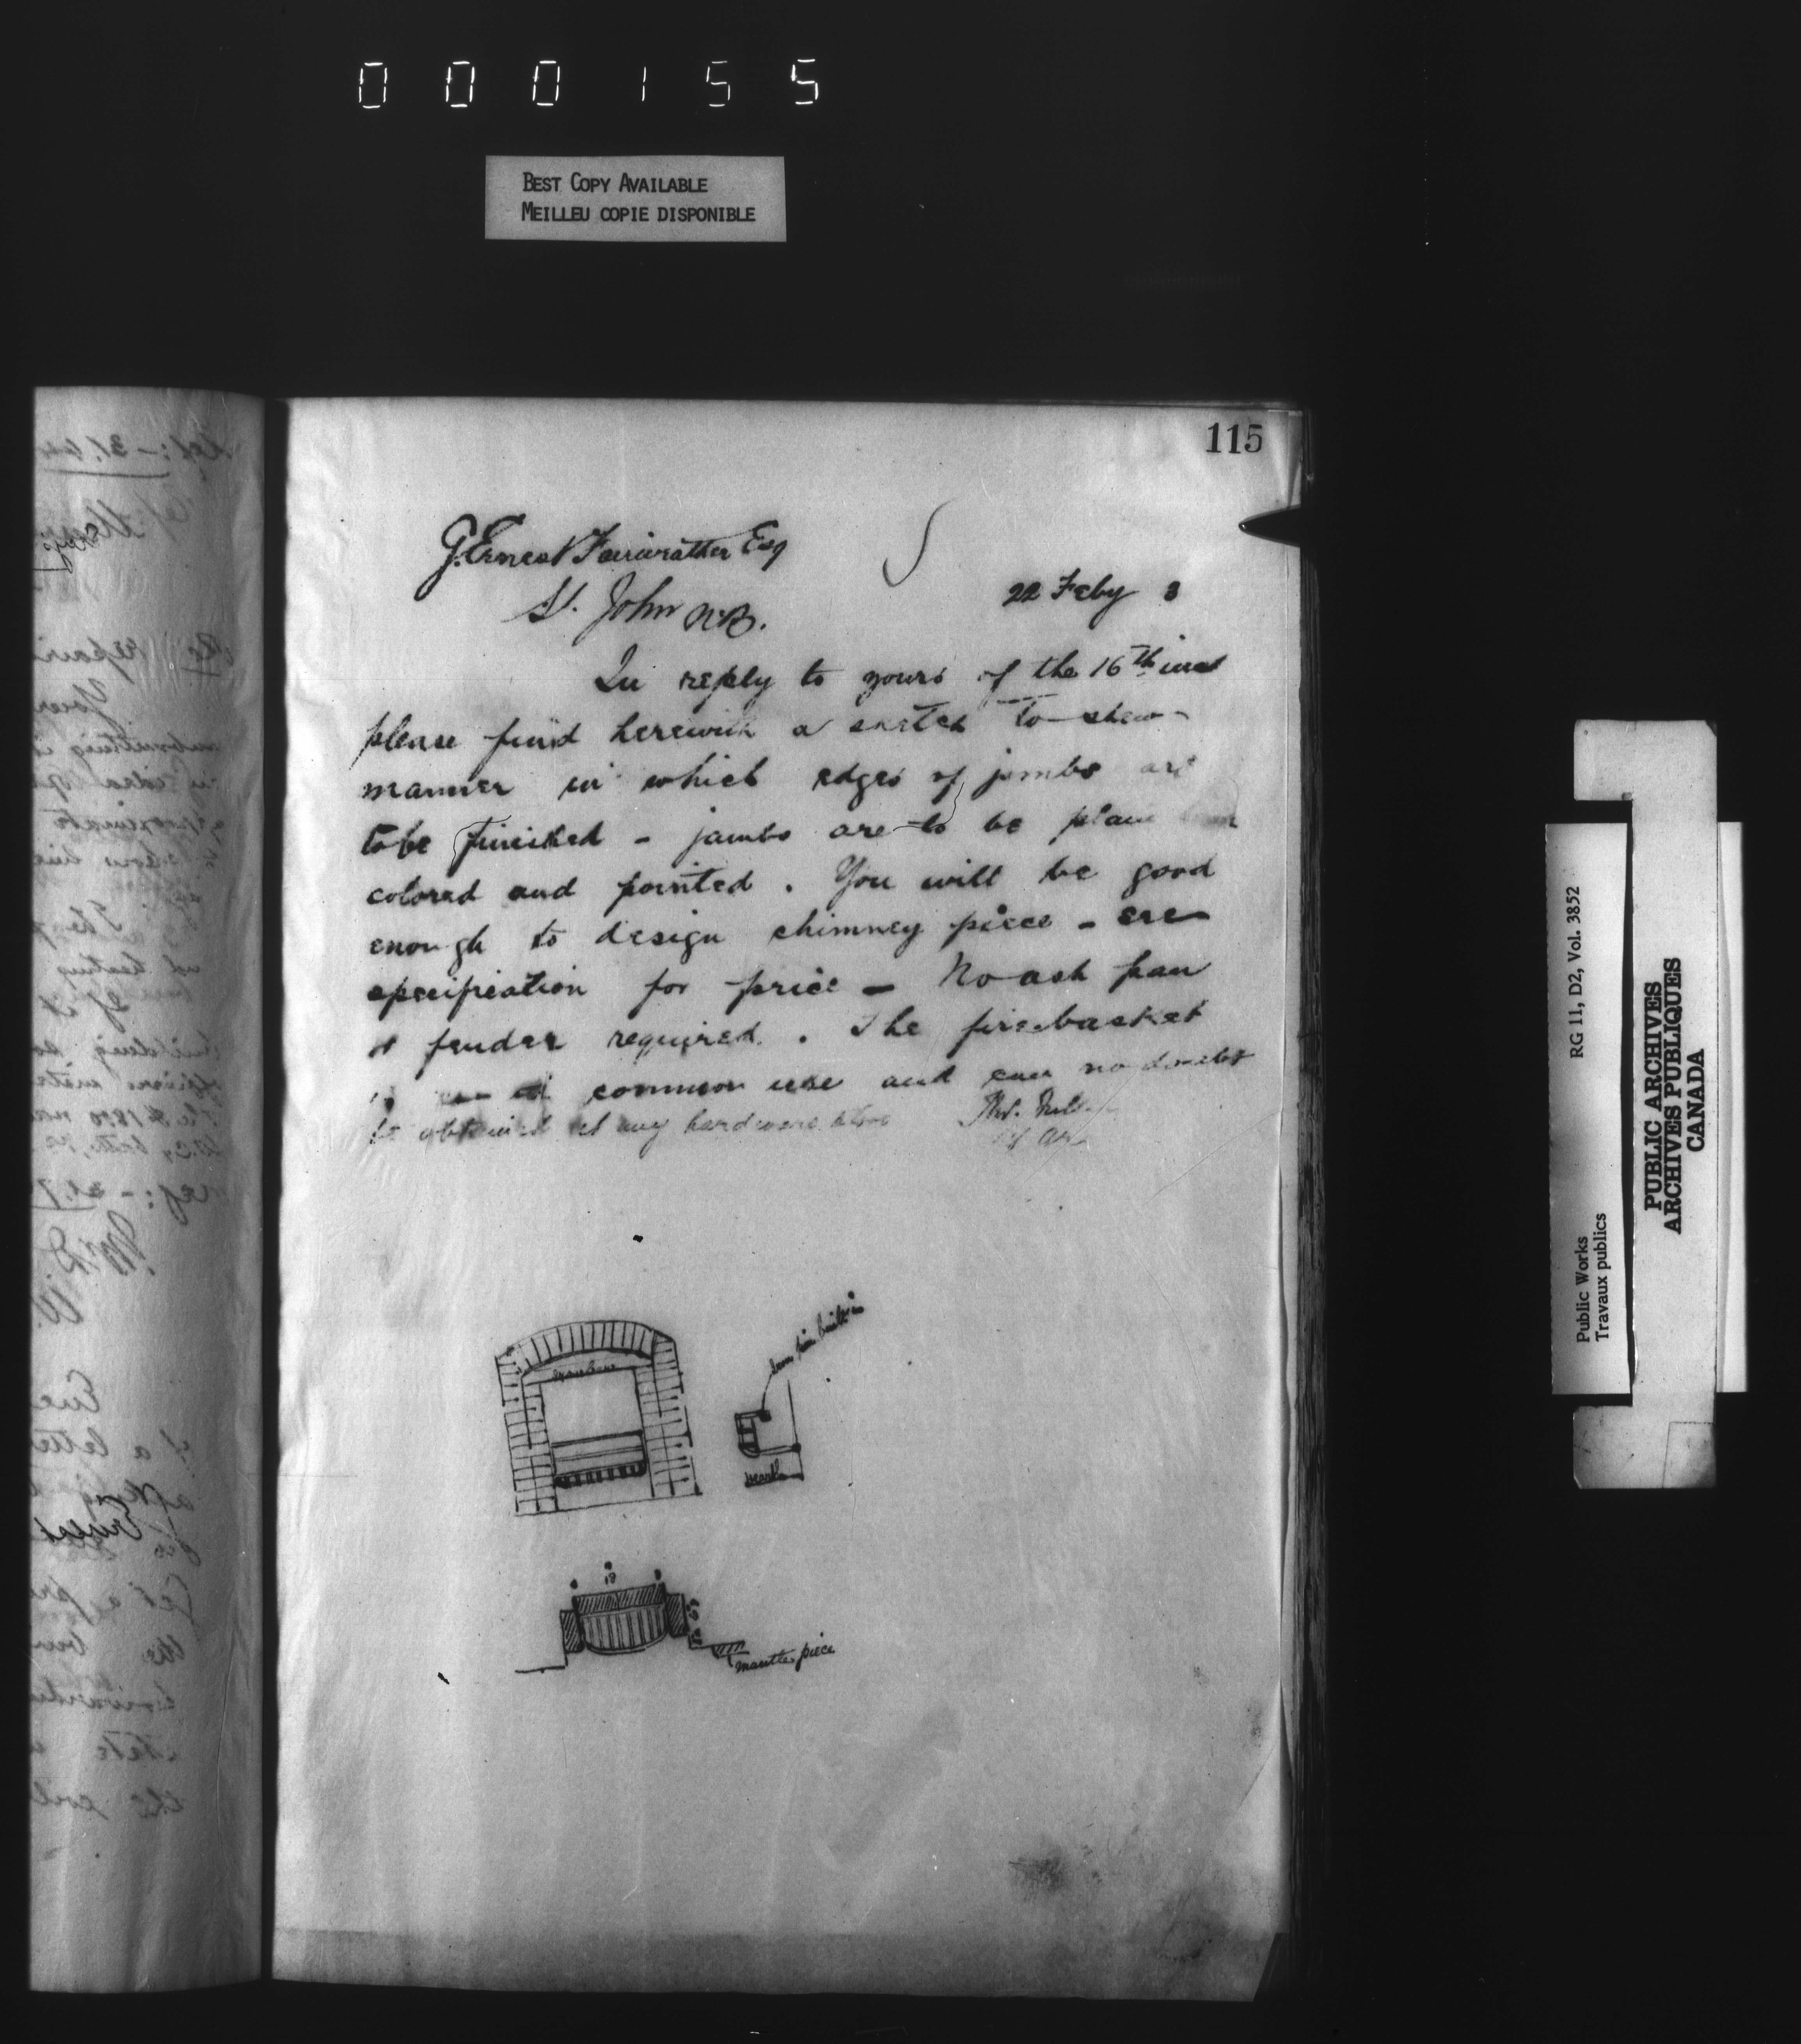 000155
BEST COPY AVAILABLE
MEILLEU COPIE DISPONIBLE
115
G. Ernest Fairweather Esq
St. John N.B.
22 Feby 3
In reply to yours of the 16th inst
please find herewith a sketch to shew
manner in which edges of jambs are
to be finished - jambs are to be plain
colored and pointed. You will be good
enough to design chimney piece - see
specification for price - No ash pan
or fender required. The firebasket
common use and can no doubt
be obtained at any hardware store
Thos. Fuller
Ch Ar
built in
hearth
18
mantle piece
RG 11, D2, Vol. 3852
Public Works
Travaux publics
PUBLIC ARCHIVES
ARCHIVES PUBLIQUES
CANADA